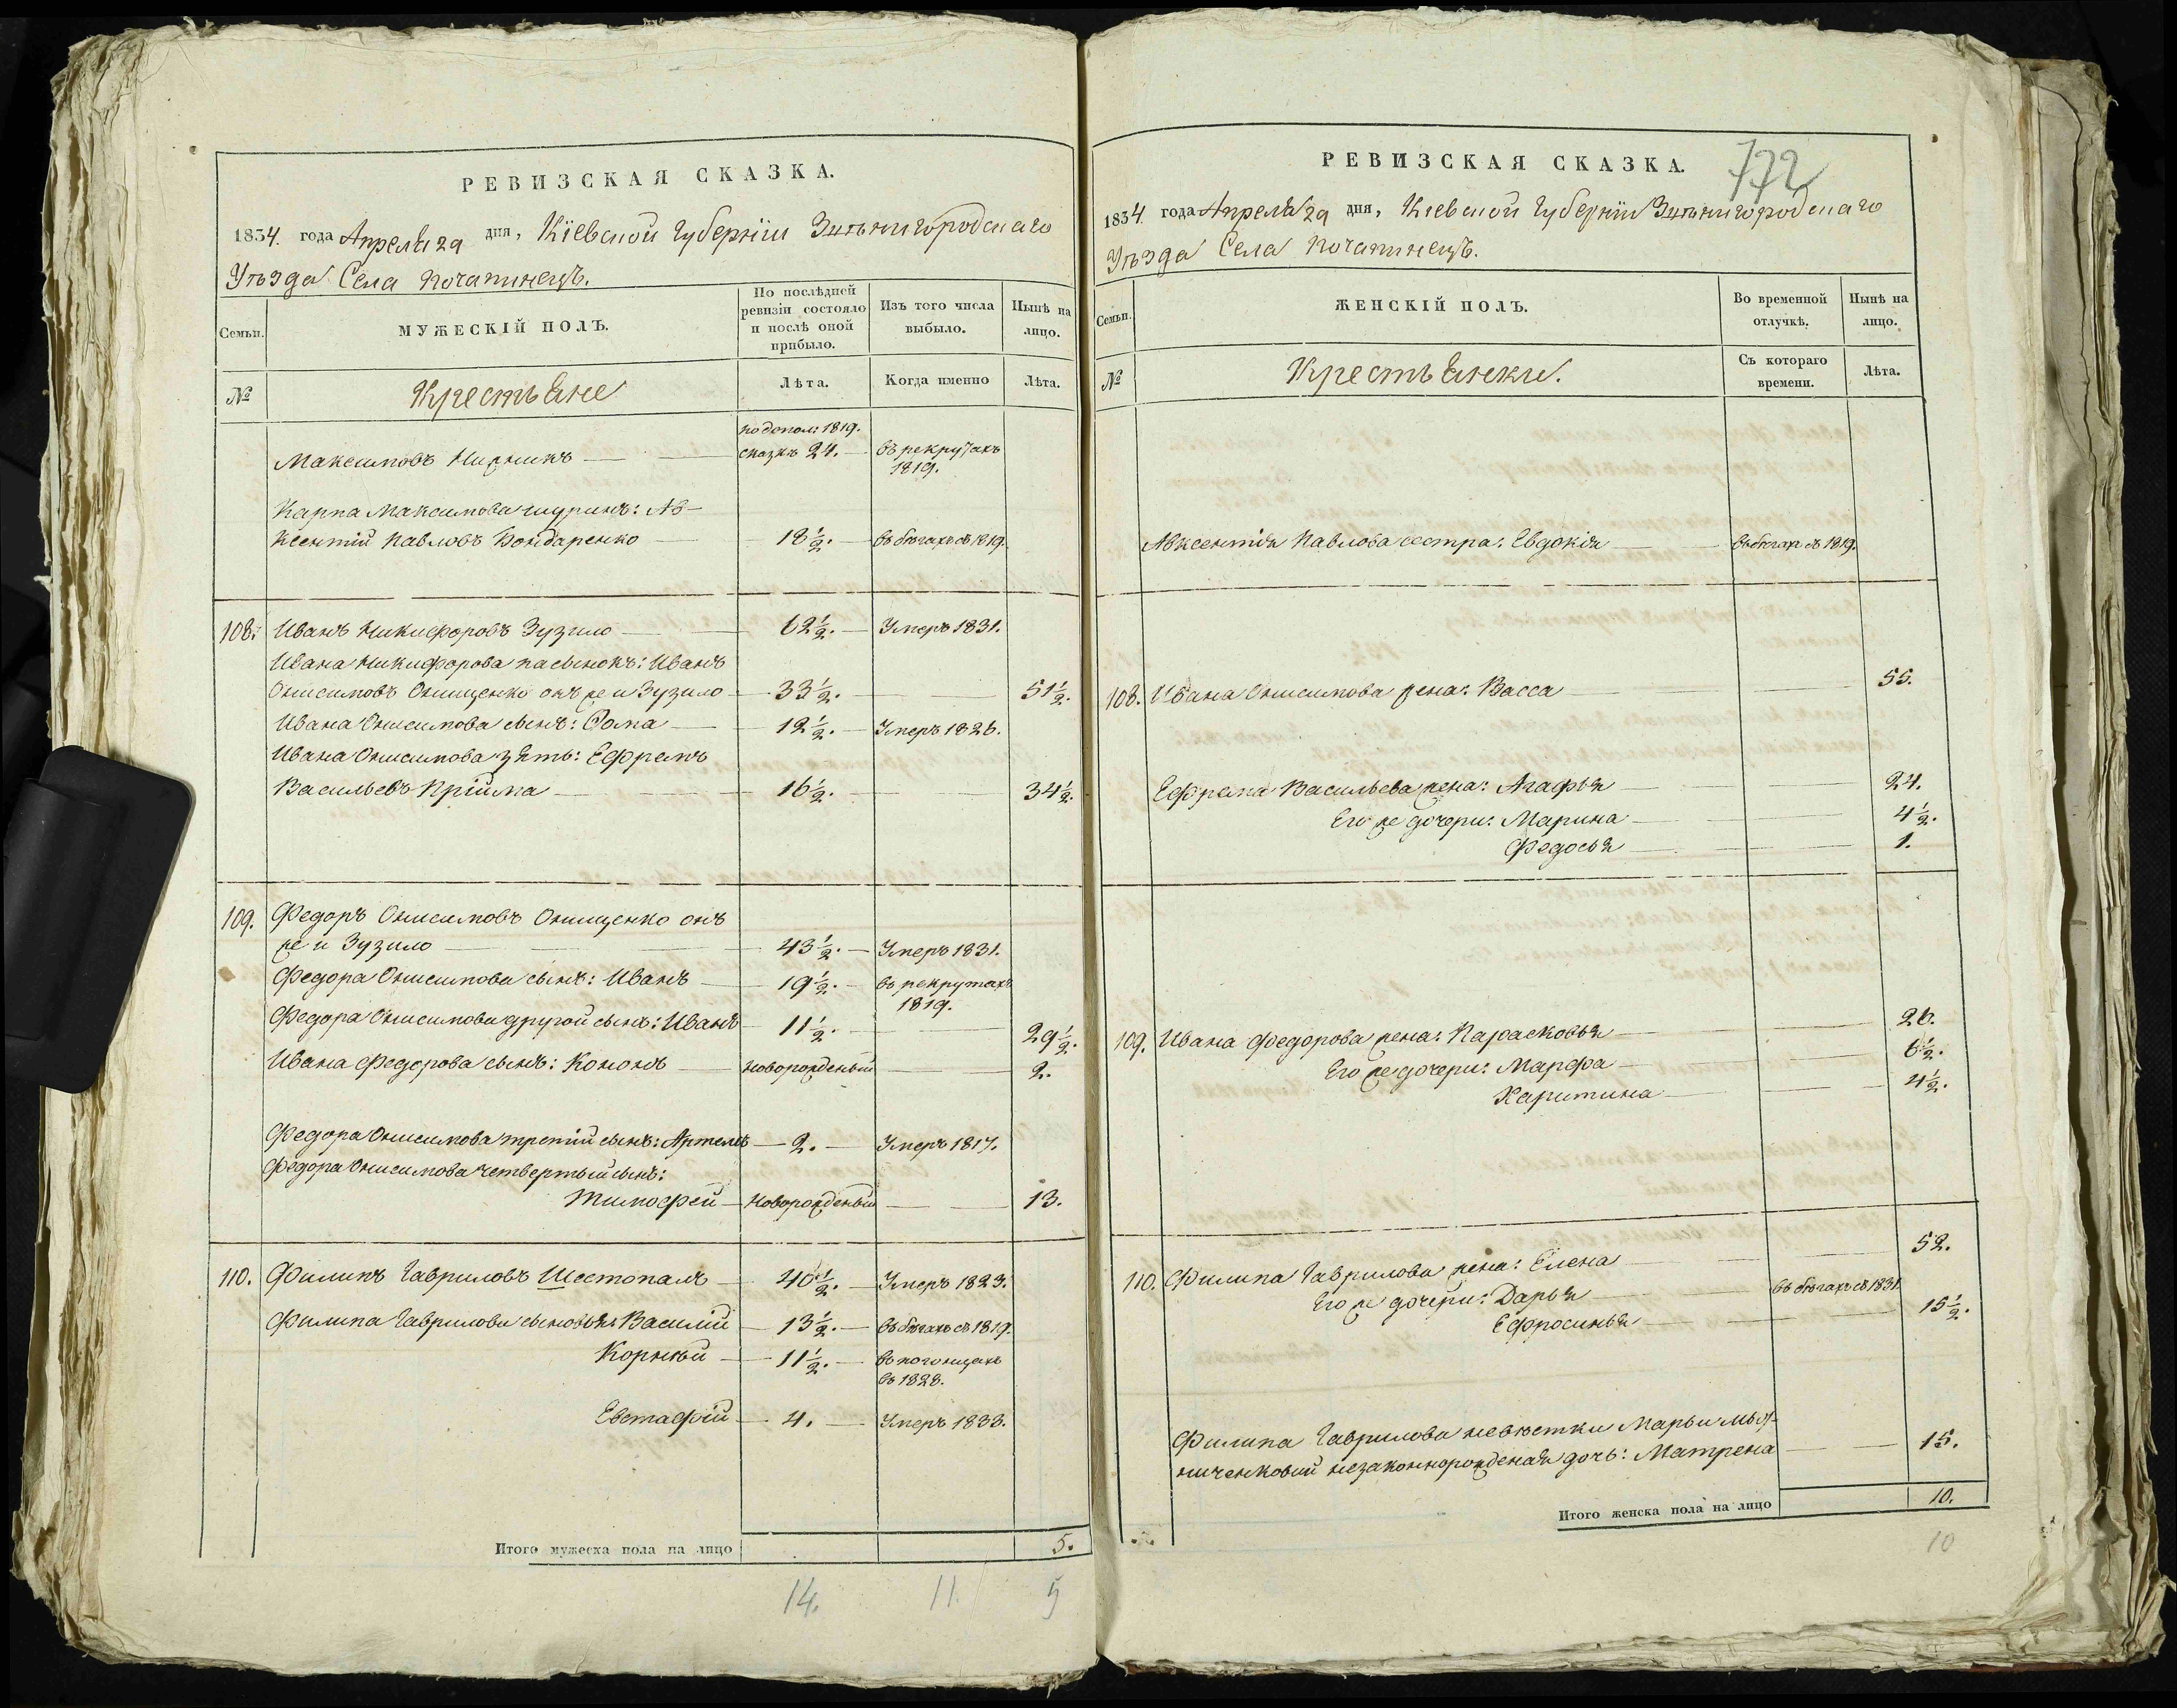 РЕВИЗСКАЯ СКАЗКА.
1834. года Апреля 29 дня, Кіевской Губерніи Звѣнигородскаго
Уѣзда Села Почапинецъ.
Семьи.
МУЖЕСКІЙ ПОЛЪ.
По послѣдней
ревизіи состояло
и послѣ оной
прибыло.
Изъ того числа
выбыло.
Нынѣ на
лицо.
№
Крестьяне
Лѣта.
Когда именно
Лѣта.
по допол: 1819.
Максимовъ — сказкѣ 24. — въ рекрутахъ
1819.
Карпа Максимова шуринъ: Ав-
ксентій Павловъ Бондаренко — 18½. — въ бѣгахъ съ 1819.
108. Иванъ Никифоровъ Зузило — 62½. — Умеръ 1831.
Ивана Никифорова пасынокъ: Иванъ
Онисимовъ Онищенко онъ же и Зузило — 33½. — 51½.
Ивана Онисимова сынъ: Фома — 12½. — Умеръ 1826.
Ивана Онисимова зять: Ефремъ
Васильевъ Прійма — 16½. — 34½.
109. Федоръ Онисимовъ Онищенко онъ
же и Зузило — 43½. — Умеръ 1831.
Федора Онисимова сынъ: Иванъ — 19½. — въ рекрутахъ
1819.
Федора Онисимова другой сынъ: Иванъ — 11½. — 29½.
Ивана Федорова сынъ: Кононъ — новорожденый — 2.
Федора Онисимова третій сынъ: Артемъ — 2. — Умеръ 1817.
Федора Онисимова четвертый сынъ:
Тимофей — новорожденый — 13.
110. Филипъ Гавриловъ Шестопалъ — 40½. — Умеръ 1823.
Филипа Гаврилова сыновья: Василій — 13½. — въ бѣгахъ съ 1819.
Корнѣй — 11½. — въ погонщахъ
въ 1828.
Евстафій — 4. — Умеръ 1833.
Итого мужеска пола на лицо 5.
14. 11. 5
РЕВИЗСКАЯ СКАЗКА.
772
1834. года Апреля 29 дня, Кіевской Губерніи Звѣнигородскаго
Уѣзда Села Почапинецъ.
Семьи.
ЖЕНСКІЙ ПОЛЪ.
Во временной
отлучкѣ.
Нынѣ на
лицо.
№
Крестьянки.
Съ котораго
времени.
Лѣта.
Авксентія Павлова сестра: Евдокія — въ бѣгахъ съ 1819.
108. Ивана Онисимова жена: Васса — 55.
Ефрема Васильева жена: Агафья — 24.
Его же дочери: Марина — 4½.
Федосья — 1.
109. Ивана Федорова жена: Парасковья — 26.
Его же дочери: Марфа — 6½.
Харитина — 4½.
110. Филипа Гаврилова жена: Елена — 52.
Его же дочери: Дарья — въ бѣгахъ съ 1831.
Ефросинья — 15½.
Филипа Гаврилова невѣстки Марьи
незаконнорожденая дочь: Матрена — 15.
Итого женска пола на лицо 10.
10